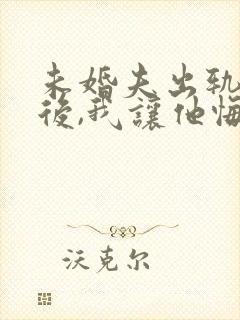 未婚夫出軌
後,我讓他悔
沃克尔